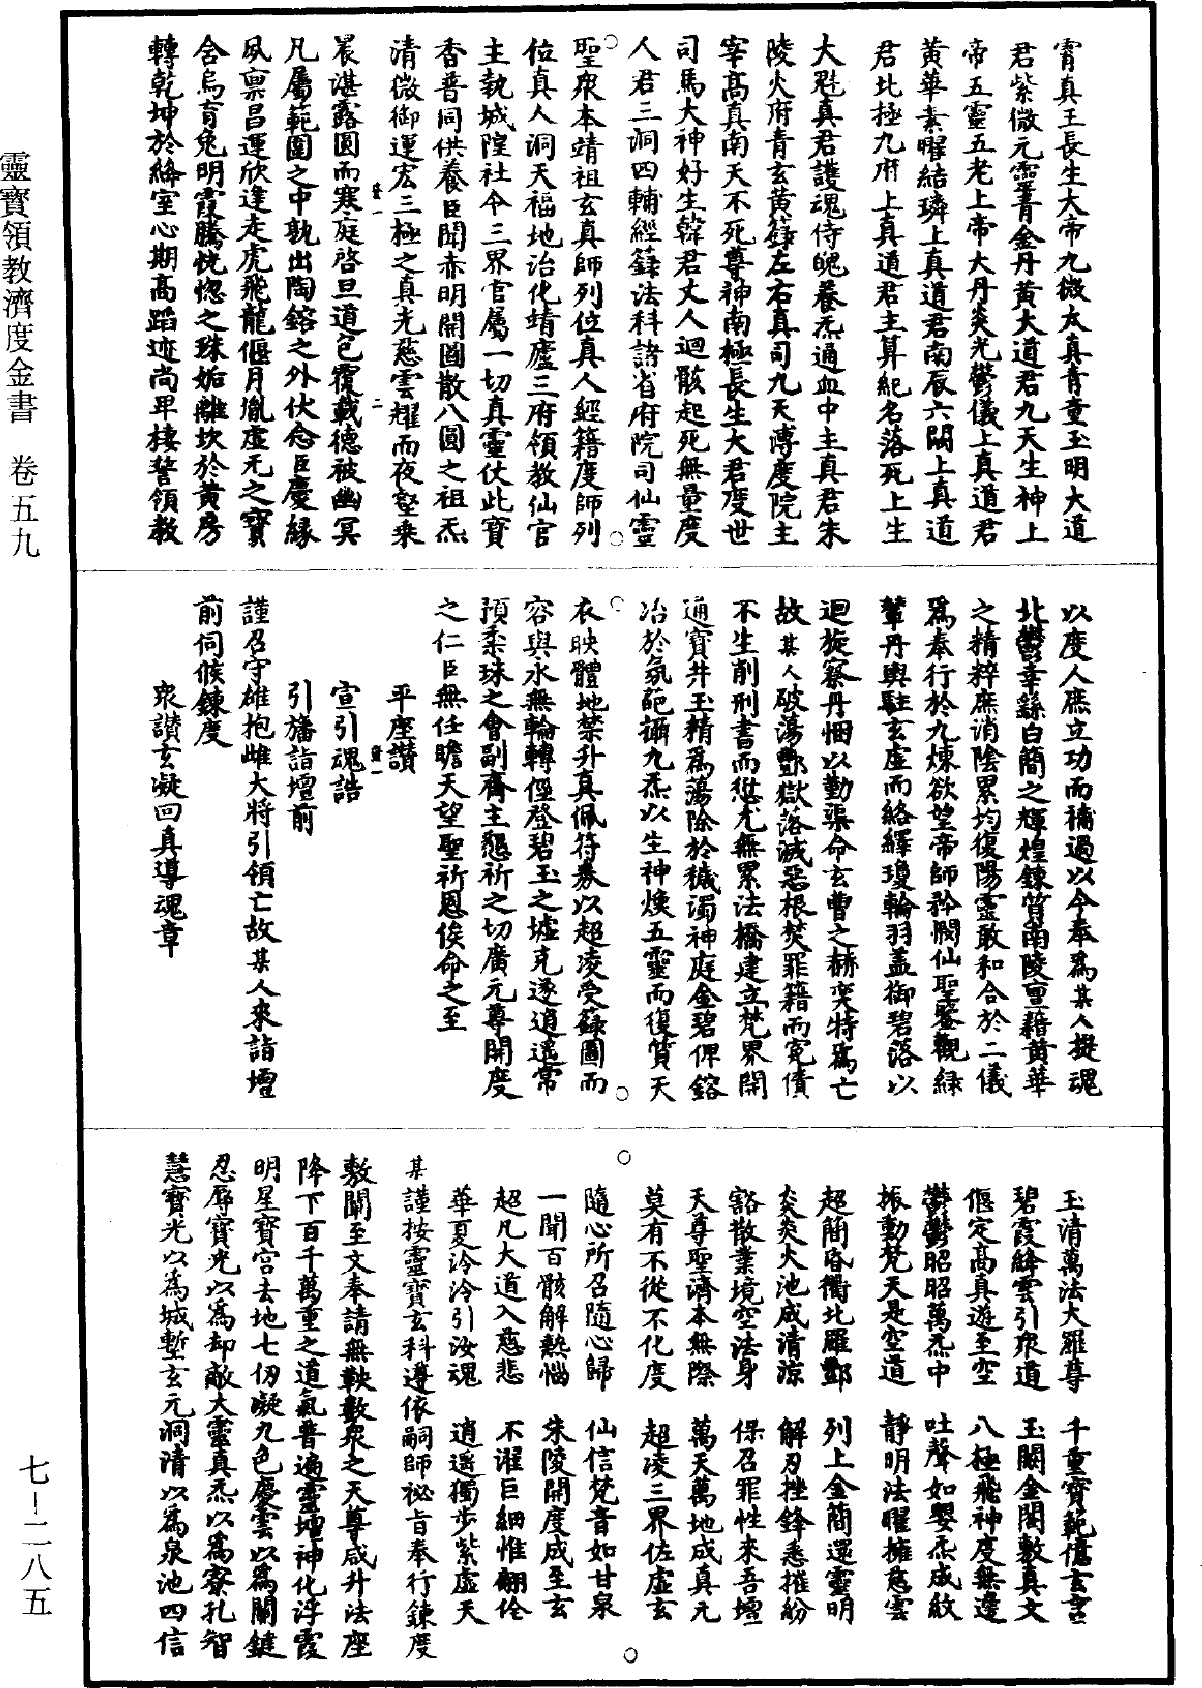 霄真王長生大帝九微太真青童玉明大道
君紫微元靈菁金丹黃大道君九天生神上
帝五靈五老上帝大丹炎光鬱儀上真道君
黃華素曜結璘上真道君南辰六閤上真道
君北極九府上真道君主算紀名落死上生
大魁真君護魂侍魄養炁通血中主真君朱
陵火府青玄黃籙左右真司九天溥度院主
宰高真南天不死尊神南極長生大君度世
司馬大神好生韓君丈人迴骸起死無量度
人君三洞四輔經籙法科諸省府院司仙靈
聖衆本靖祖玄真師列位真人經籍度師列
位真人洞天福地治化靖廬三府領教仙官
主執城隍社令三界官屬一切真靈仗此寶
香普同供養臣聞赤明開圖散八圓之祖炁
清微御運宏三極之真光慈雲耀而夜壑乘
晨湛露圓而寒庭啓旦道包覆載德被幽冥
凡屬範圍之中孰出陶鎔之外伏念臣慶緣
夙稟昌運欣逢走虎飛龍偃月胤虛无之寶
含烏育兔明霞騰恍惚之珠姤離坎於黃房
轉乾坤於絳室心期高蹈迹尚卑棲誓領教
以度人庶立功而補過以今奉爲某人提魂
北鬱幸繇白簡之輝煌鍊質南陵亶藉黃華
之精粹庶消陰累均復陽靈敢和合於二儀
爲奉行於九煉欲望帝師矜憫仙聖鑒觀綠
輦丹輿駐玄虛而絡繹瓊輪羽蓋御碧落以
迴旋察丹悃以勤渠命玄曹之赫奕特爲亡
故某人破蕩酆獄落滅惡根焚罪籍而冤債
不生削刑書而愆尤無累法橋建立梵界開
通寶井玉精爲蕩除於穢濁神庭金碧俾鎔
冶於氛葩攝九炁以生神煥五靈而復質天
衣映體地禁升真佩符券以超淩受籙圖而
容與永無輪轉俓登碧玉之墟克遂逍遙常
預黍珠之會副齋主懇祈之切廣元尊開度
之仁臣無任瞻天望聖祈恩俟命之至
平座讚
宣引魂誥
引旛詣壇前
謹召守雄抱雌大將引領亡故某人來詣壇
前伺候鍊度
衆讚玄凝回真導魂章
玉清萬法大羅尊　千重寶範億玄言
碧霞絳雲引眾道　玉闕金閣敷真文
偃定高真遊至空　八極飛神度無邊
鬱鬱昭昭萬炁中　吐聲如嬰炁成紋
振動梵天是空道　靜明法曜擁慈雲
超簡昏衢北羅酆　列上金簡還靈明
炎炎火池咸清涼　解刃挫鋒悉摧紛
豁散業境空法身　保召罪性來吾壇
天尊聖濟本無際　萬天萬地成真元
莫有不從不化度　超淩三界佐虛玄
隨心所召隨心歸　仙信梵音如甘泉
一聞百骸解熱惱　朱陵開度成至玄
超凡大道入慈悲　不濯巨細惟翩伶
華夏泠泠引汝魂　逍遙獨步紫虛天
某謹按靈寶玄科遵依嗣師祕旨奉行鍊度
敷闡至文奉請無鞅數衆之天尊咸升法座
降下百千萬重之道氣普遍靈壇神化浮霞
明星寶宮去地七仞凝九色慶雲以爲關鍵
忍辱寶光以爲却敵大靈真炁以爲寮孔智
慧寶光以爲城塹玄元洞清以爲泉池四信
靈寶領教濟度金書　卷五九
七—二八五